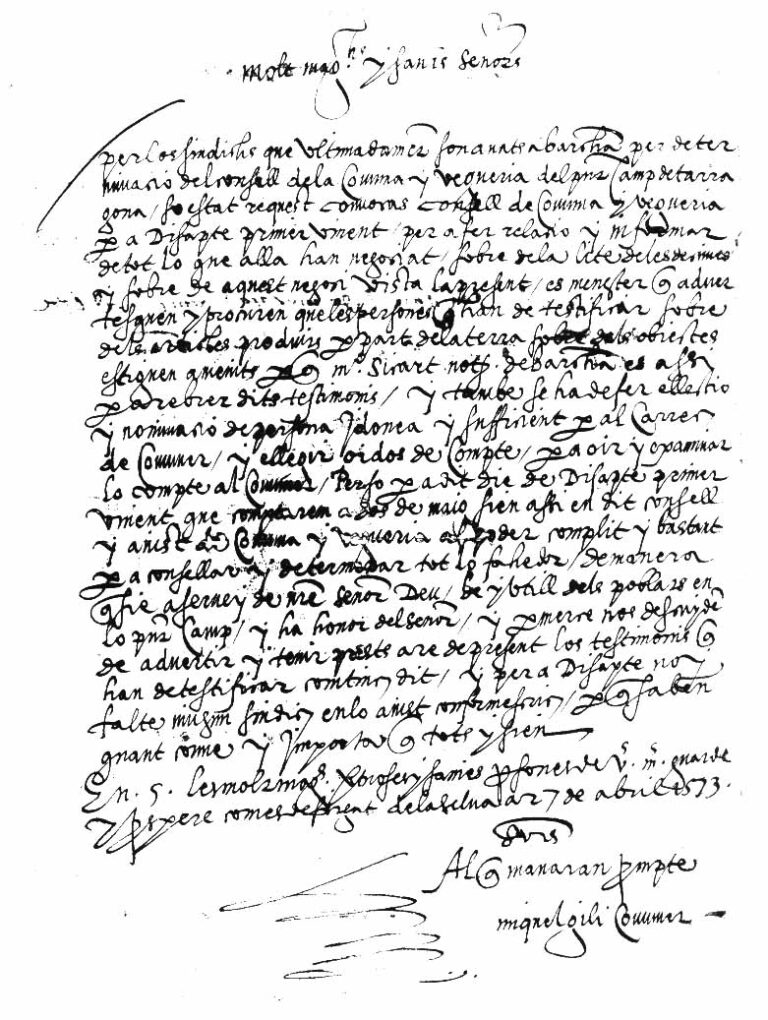 molt mag.chs y savis señors
per los sindichs que ultimadament son anats a barcha per deter
minacio del consell de la Comuna y vegueria del pnt Camp de tarra
gona / so estat request convocas consell de Comuna y vegueria
p a Disapte primer vinent / per a fer relacio y informar
de tot lo que alla han negociat / sobre de la lite de les decimes
y sobre de aquest negoci vista la present / es menester q adver
tesquen y procuren que les persones q han de testificar sobre
dels articles produits p part de la terra sobre dels obiectes
estiguen a q m.º Sicart not de barcha es assi
p a rebrer dits testimonis / y tambe se ha de fer ellectio
y nominacio de persona Idonea y sufficient p al Carrec
de Comuner / y ellegir oidos de Compte / p a oir y examinar
lo compte al Comuner / Perso p a dit die de Disapte primer
vinent que comptarem a dos de maio sien assi en dit consell
y aiust de Comuna y vegueria ab poder complit y bastant
p a consellar y determenar tot lo fahedor / de manera
q sie a servey de nre señor Deu / be y utill dels poblats en
lo pnt Camp / y ha honor del señor / y p merce nos descuyde
de advertir y tenir prests are de present los testimonis q
han de testificar com tinch dit / y per a Disapte no y
falte ningun sindich en lo aiust conforme scrich / p q saben
quant conve y Importa q tots y sien
En S. les molt mag. y savies psones de v. m. guarde
y prospere com es desigat de la selva a 27 de abril 1573.
de v. ms
Al q manaran prompte
miquel gili Comuner